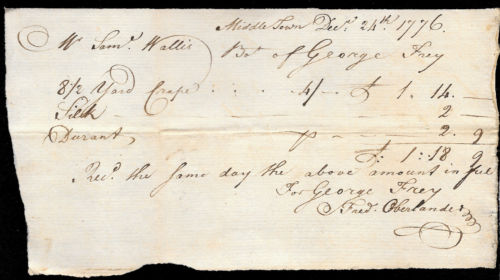 Middle Town Decr. 24th. 1776.
Mr Saml. Wallis Bot of George Frey
8 1/2 Yard Crape 4/ £ 1. 14. —
Silk — 2 —
Durant, — 2. 9
£ 1: 18 9
Recd. the same day the above amount in full
For George Frey
Fredk. Oberlander